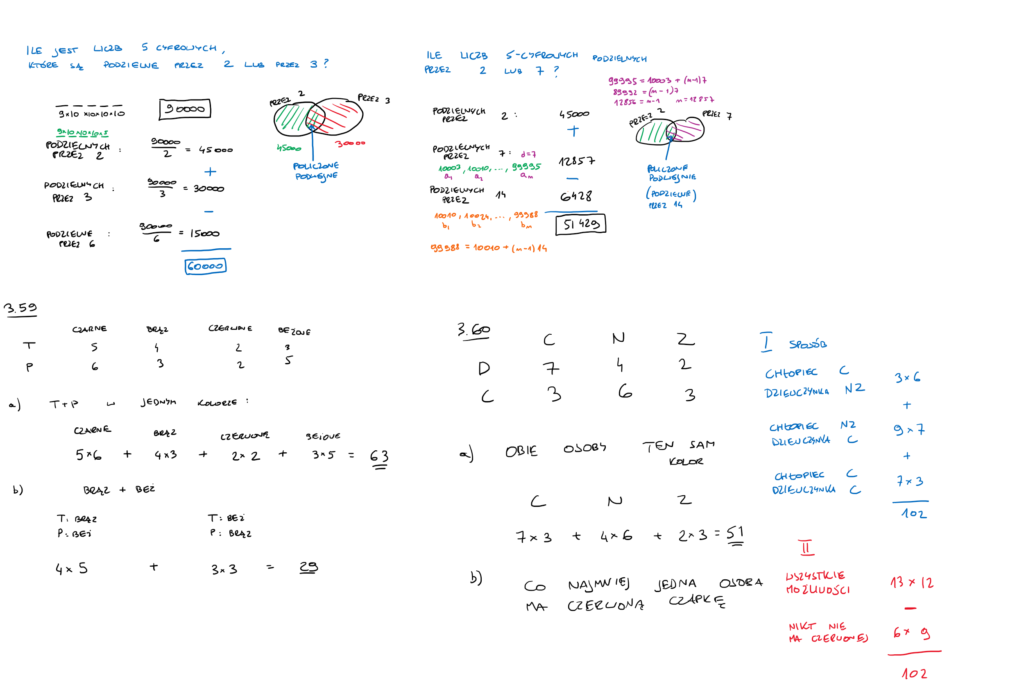 ILE JEST LICZB 5 CYFROWYCH,
KTÓRE SĄ PODZIELNE PRZEZ 2 LUB PRZEZ 3?
9×10×10×10×10
90000
9×10×10×10×5
PODZIELNYCH
PRZEZ 2 :
90000/2 = 45000
+
PODZIELNYCH
PRZEZ 3 :
90000/3 = 30000
-
PODZIELNE
PRZEZ 6 :
90000/6 = 15000
60000
PRZEZ 2
PRZEZ 3
45000
30000
POLICZONE
PODWÓJNIE
ILE LICZB 5-CYFROWYCH PODZIELNYCH
PRZEZ 2 LUB 7?
99995 = 10003 + (n-1)7
89992 = (n-1)7
12856 = n-1 n = 12857
PODZIELNYCH
PRZEZ 2 :
45000
+
PODZIELNYCH
PRZEZ 7 : d=7
10003, 10010, ..., 99995
a₁ a₂ aₙ
12857
-
PODZIELNYCH
PRZEZ 14
6428
10010, 10024, ..., 99988
b₁ b₂ bₙ
51429
99988 = 10010 + (n-1)14
PRZEZ 2
PRZEZ 7
POLICZONE
PODWÓJNIE
(PODZIELNE)
PRZEZ 14
3.59
CZARNE BRĄZ CZERWONE BEŻOWE
T 5 4 2 3
P 6 3 2 5
a) T+P W JEDNYM KOLORZE:
CZARNE BRĄZ CZERWONE BEŻOWE
5×6 + 4×3 + 2×2 + 3×5 = 63
b) BRĄZ + BEŻ
T: BRĄZ T: BEŻ
P: BEŻ P: BRĄZ
4×5 + 3×3 = 29
3.60
C N Z
D 7 4 2
C 3 6 3
a) OBIE OSOBY TEN SAM
KOLOR
C N Z
7×3 + 4×6 + 2×3 = 51
b) CO NAJMNIEJ JEDNA OSOBA
MA CZERWONĄ CZAPKĘ
I SPOSÓB
CHŁOPIEC C
DZIEWCZYNKA NZ
3×6
+
CHŁOPIEC NZ
DZIEWCZYNKA C
9×7
+
CHŁOPIEC C
DZIEWCZYNKA C
7×3
102
II
WSZYSTKIE
MOŻLIWOŚCI
13×12
-
NIKT NIE
MA CZERWONEJ
6×9
102